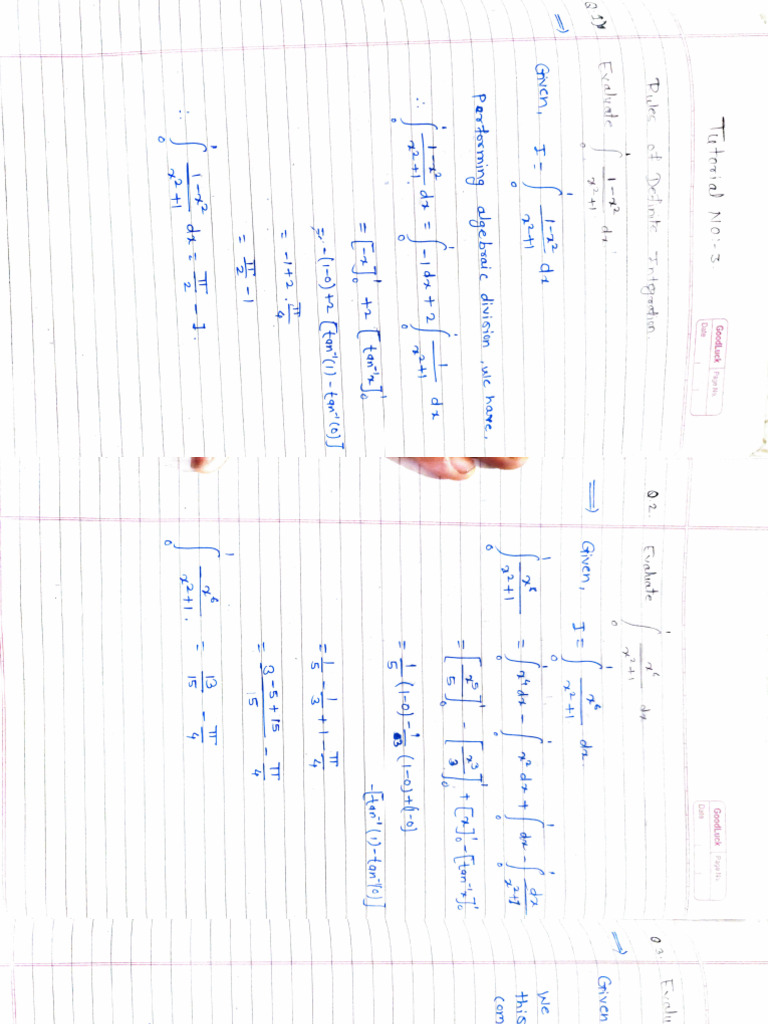 GoodLuck Page No.
Date
Tutorial NO:-3
Rules of Definite Integration
Q.1) Evaluate ∫₀¹ (1-x²)/(x²+1) dx.
⇒ Given, I = ∫₀¹ (1-x²)/(x²+1) dx
Performing algebraic division, we have,
∴ ∫₀¹ (1-x²)/(x²+1) dx = ∫₀¹ -1 dx + 2 ∫₀¹ 1/(x²+1) dx
= [-x]₀¹ + 2 [tan⁻¹x]₀¹
= -(1-0) + 2 [tan⁻¹(1) - tan⁻¹(0)]
= -1 + 2 . π/4
= π/2 - 1
∴ ∫₀¹ (1-x²)/(x²+1) dx = π/2 - 1.
GoodLuck Page No.
Date
Q 2. Evaluate ∫₀¹ x⁶/(x²+1) dx
⇒ Given, I = ∫₀¹ x⁶/(x²+1) dx.
∫₀¹ x⁶/(x²+1) = ∫₀¹ x⁴dx - ∫₀¹ x² dx + ∫₀¹ dx - ∫₀¹ dx/(x²+1)
= [x⁵/5]₀¹ - [x³/3]₀¹ + [x]₀¹ - [tan⁻¹x]₀¹
= 1/5 (1-0) - 1/3 (1-0) + (1-0)
- [tan⁻¹(1) - tan⁻¹(0)]
= 1/5 - 1/3 + 1 - π/4
= (3-5+15)/15 - π/4
∫₀¹ x⁶/(x²+1). = 13/15 - π/4
Q 3. Evalu
⇒ Given
We
this
com